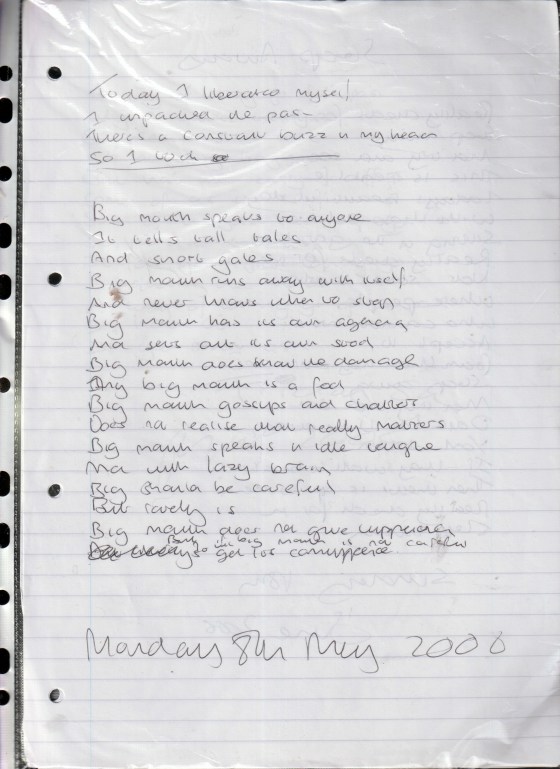 Today I liberated myself
I unpacked the past
There's a constant buzz in my head
So I

Big mouth speaks to anyone
It tells tall tales
And snort gales
Big mouth runs away with itself
And never knows when to stop
Big mouth has its own agenda
its own
Big mouth does know the damage
big mouth is a fool
Big mouth gossips and chatters
Does not realise what really matters
Big mouth speaks in idle tongue
with lazy brain
Big should be careful
But rarely is
Big mouth does not give
But if big mouth is not careful
to get its comuppence
Monday 8th May 2006